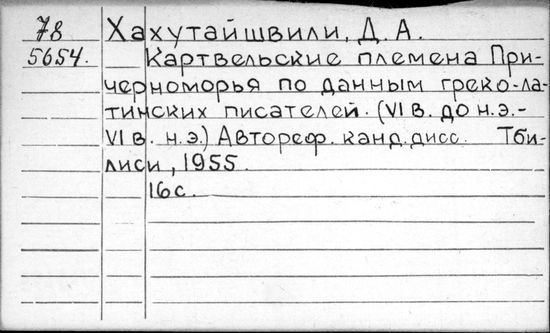 78 Хахутайшвили, Д. А.
5654. Картвельские племена При-
черноморья по данным греко-ла-
тинских писателей. (VI в. до н.э.-
VI в. н.э.) Автореф. канд. дисс. Тби-
лиси, 1955.
16с.